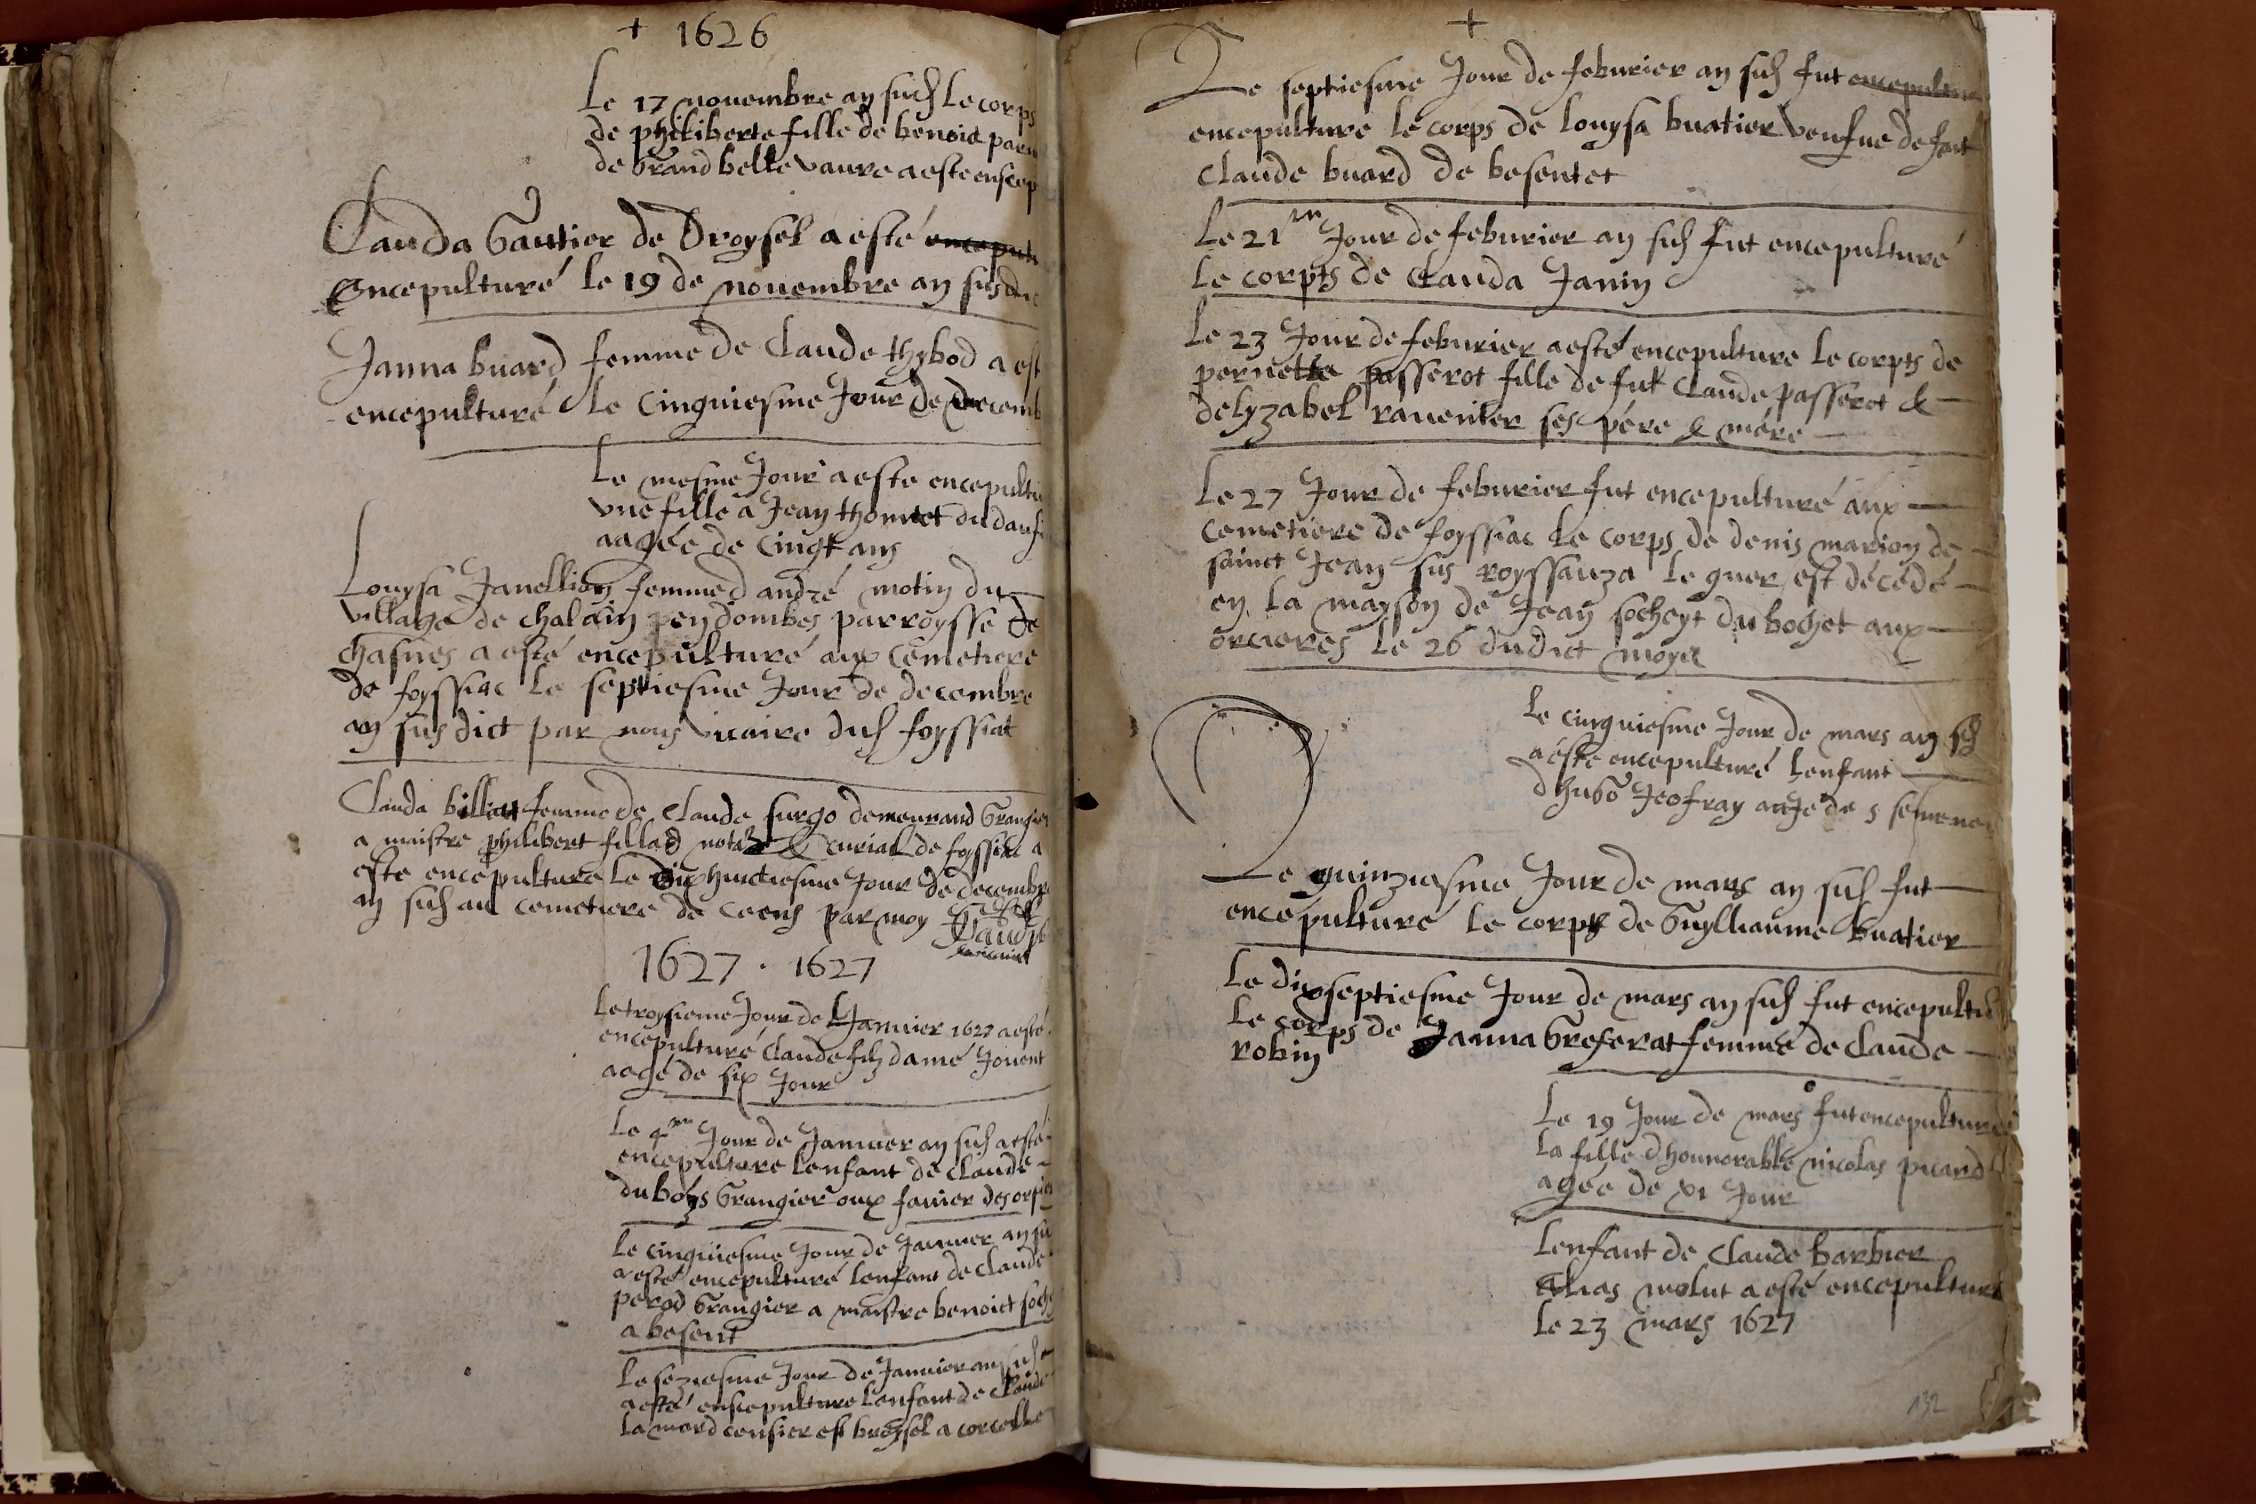 + 1626
Le 17 nouembre an susd Le corps
de philiberte fille de benoict
de Grand belle vaure a este ensep
Clauda Gautier de Droysel a esté
Encepulturé le 19 de nouembre an susdic
Janna buard femme de Claude thybod a est
encepulturé le Cinquiesme Jour de decemb
Le mesme Jour a este encepultu
vne fille a Jean thomet du
aagée de Cinqt ans
Louysa Janellion femme d andré motin du
village de chalain pey dombes parroysse de
chasnes a esté encepulturé aux Cemetiere
de foyssiac le septiesme Jour de decembre
an susdict par nous vicaire dud foyssiat
Clauda billiat femme de Claude surgo demeurand Grangier
a maistre philibert fillad not & Curial de foyssiac a
este encepulture le Dixhuictiesme Jour de decembre
an susd au cemetiere de Ceens par moy

1627 . 1627
Le troysieme Jour de Januier 1627 a esté
encepulturé Claude filz damé Jouent
aagé de six Jour
Le 4me Jour de Januier an susd a esté
encepulture lenfant de Claude
du boys Grangier oux fauier des
Le cinquiesme Jour de Januier an su
a esté encepulturé lenfant de Claude
perod Grangier a maistre benoict soche
a besent
Le seziesme Jour de Januier an susd
a esté ensepulture lenfant de Claude
la mard censier
+
Le septiesme Jour de feburier an susd fut encepulture
encepulture le corps de louysa buatier veufue de feut
Claude buard de besentet
Le 21m Jour de feburier an susd fut encepulturé
Le corpts de Clauda Janin
Le 23 Jour de feburier a esté encepulture le corpts de
pernette passerot fille de fut Claude passerot &
delyzabel rauenier ses pére & mére
Le 27 Jour de feburier fut encepulturé aux
Cemetiere de foyssiac le corps de denis marion de
sainct Jean sus royssauza le quer est décédé
en la mayson de Jean socheyt du bochet aux
orcieres le 26 dudict moys
Le cinquiesme Jour de mars an sd
a este encepulturé lenfant
d hugo Jeofray
Le quinziesme Jour de mars an susd fut
encepulturé le corps de Guylliaume buatier
Le dixseptiesme Jour de mars an susd fut encepultu
Le corps de Janna Greferat femme de Claude
robin
Le 19 Jour de mars fut encepulture
la fille d honnorable nicolas picard
agée de xi Jour
Lenfant de Claude barbier
Alias molut a esté encepulture
Le 23 mars 1627
132